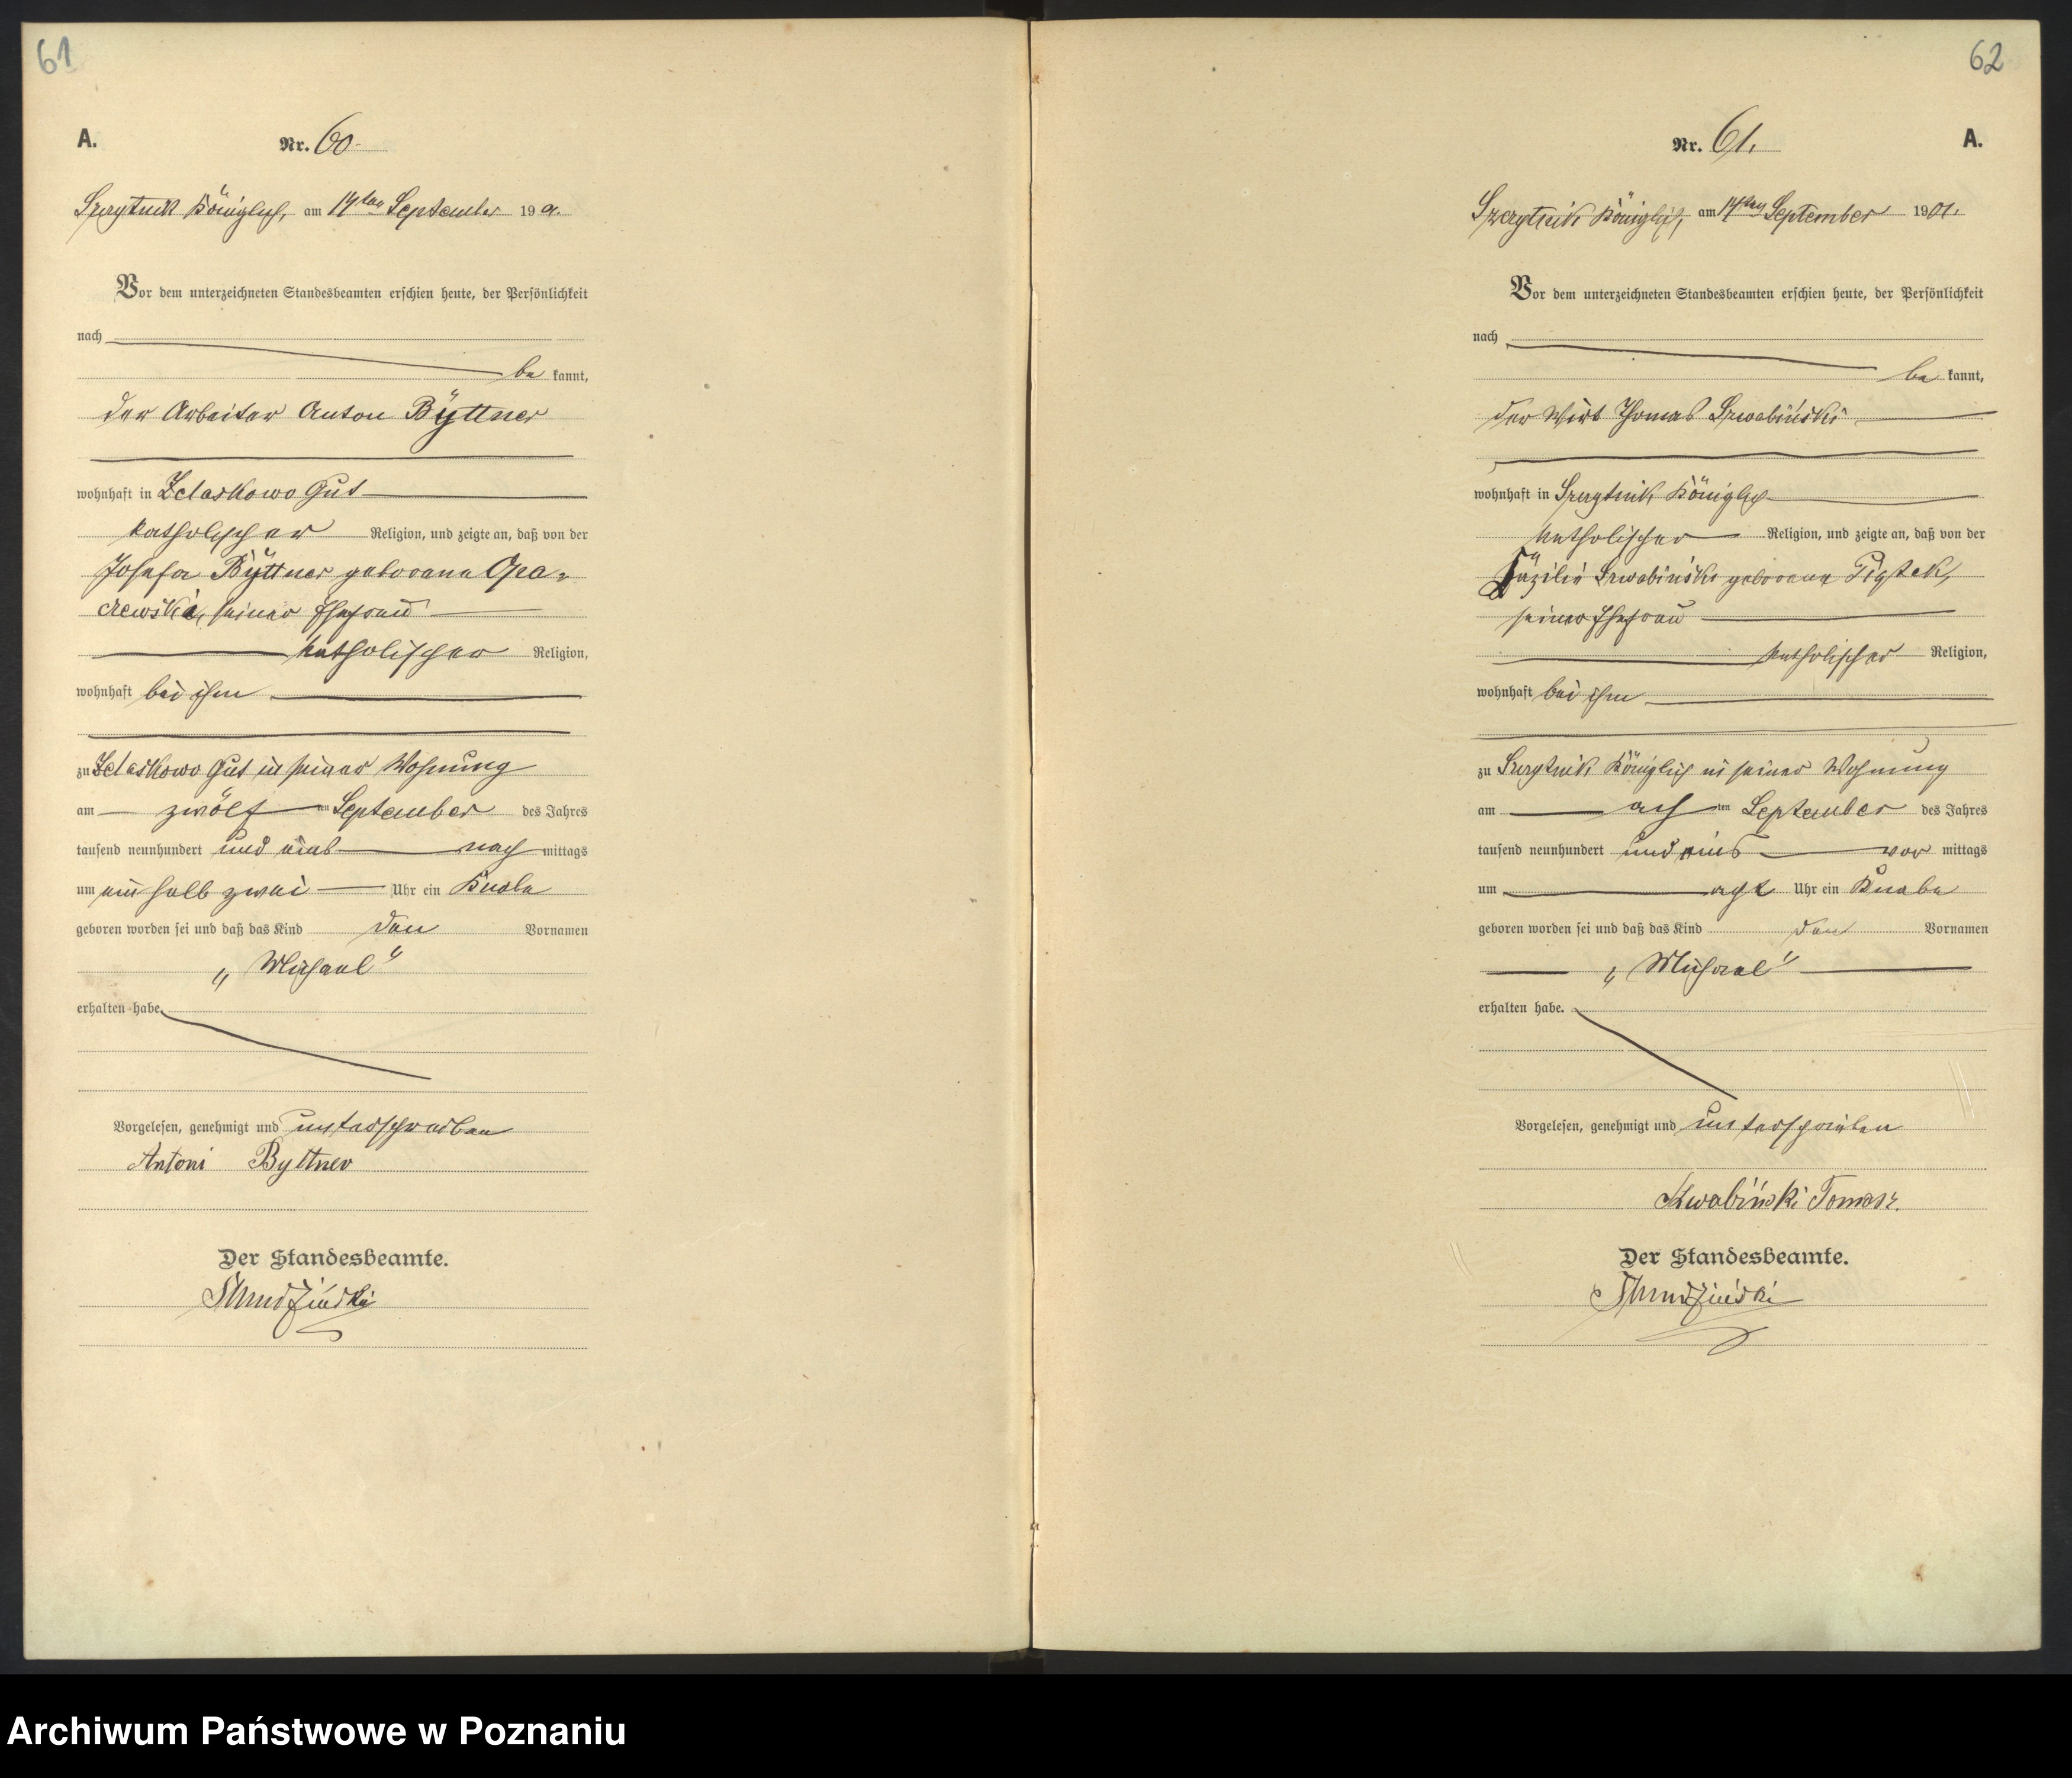 61
A.
Nr. 60.
Szczytnik Königlich, am 14ten September 1901.
Vor dem unterzeichneten Standesbeamten erschien heute, der Persönlichkeit
nach
be kannt,
der Arbeiter Anton Byttner
wohnhaft in Zelaskowo Gut
katholischer Religion, und zeigte an, daß von der
Josefa Byttner geborene
seiner Ehefrau
katholischer Religion,
wohnhaft bei ihm
zu Zelaskowo Gut in seiner Wohnung
am zwölf ten September des Jahres
tausend neunhundert und eins nach mittags
um ein halb zwei Uhr ein Knabe
geboren worden sei und daß das Kind den Vornamen
„Michael“
erhalten habe.
Vorgelesen, genehmigt und unterschrieben
Antoni Byttner
Der Standesbeamte.
62
Nr. 61. A.
Szczytnik Königlich, am 14ten September 1901.
Vor dem unterzeichneten Standesbeamten erschien heute, der Persönlichkeit
nach
be kannt,
der Wirt Thomas Szwabiński
wohnhaft in Szczytnik Königlich
katholischer Religion, und zeigte an, daß von der
Cäzilie Szwabiński geborene Piątek,
seiner Ehefrau
katholischer Religion,
wohnhaft bei ihm
zu Szczytnik Königlich in seiner Wohnung
am ach ten September des Jahres
tausend neunhundert und eins vor mittags
um acht Uhr ein Knabe
geboren worden sei und daß das Kind den Vornamen
„Michael“
erhalten habe.
Vorgelesen, genehmigt und unterschrieben
Szwabiński Tomasz.
Der Standesbeamte.
Archiwum Państwowe w Poznaniu